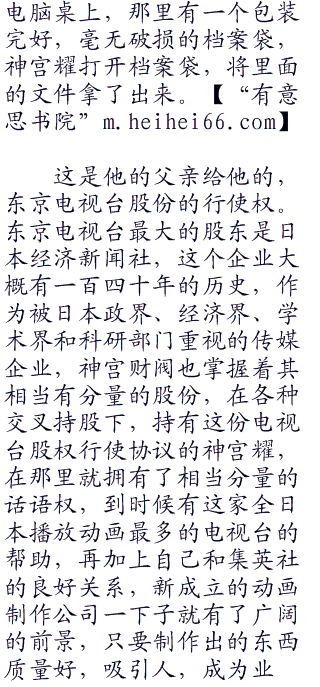 电脑桌上，那里有一个包装
完好，毫无破损的档案袋，
神宫耀打开档案袋，将里面
的文件拿了出来。【“有意
思书院”m.heihei66.com】
这是他的父亲给他的，
东京电视台股份的行使权。
东京电视台最大的股东是日
本经济新闻社，这个企业大
概有一百四十年的历史，作
为被日本政界、经济界、学
术界和科研部门重视的传媒
企业，神宫财阀也掌握着其
相当有分量的股份，在各种
交叉持股下，持有这份电视
台股权行使协议的神宫耀，
在那里就拥有了相当分量的
话语权，到时候有这家全日
本播放动画最多的电视台的
帮助，再加上自己和集英社
的良好关系，新成立的动画
制作公司一下子就有了广阔
的前景，只要制作出的东西
质量好，吸引人，成为业